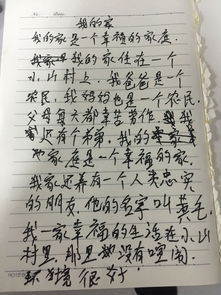 No.
Date.
我的家
我的家是一个幸福的家庭。
我的家住在一个
小山村上，我爸爸是一个
农民，我妈妈也是一个农民。
父母每天都辛苦劳作，我
还有个弟弟，我的
家庭是一个幸福的家。
我家还养有一个人类忠实
的朋友，他的名字叫黄毛
我一家幸福的生活在小山
村里，那里没有喧闹，
环境很好